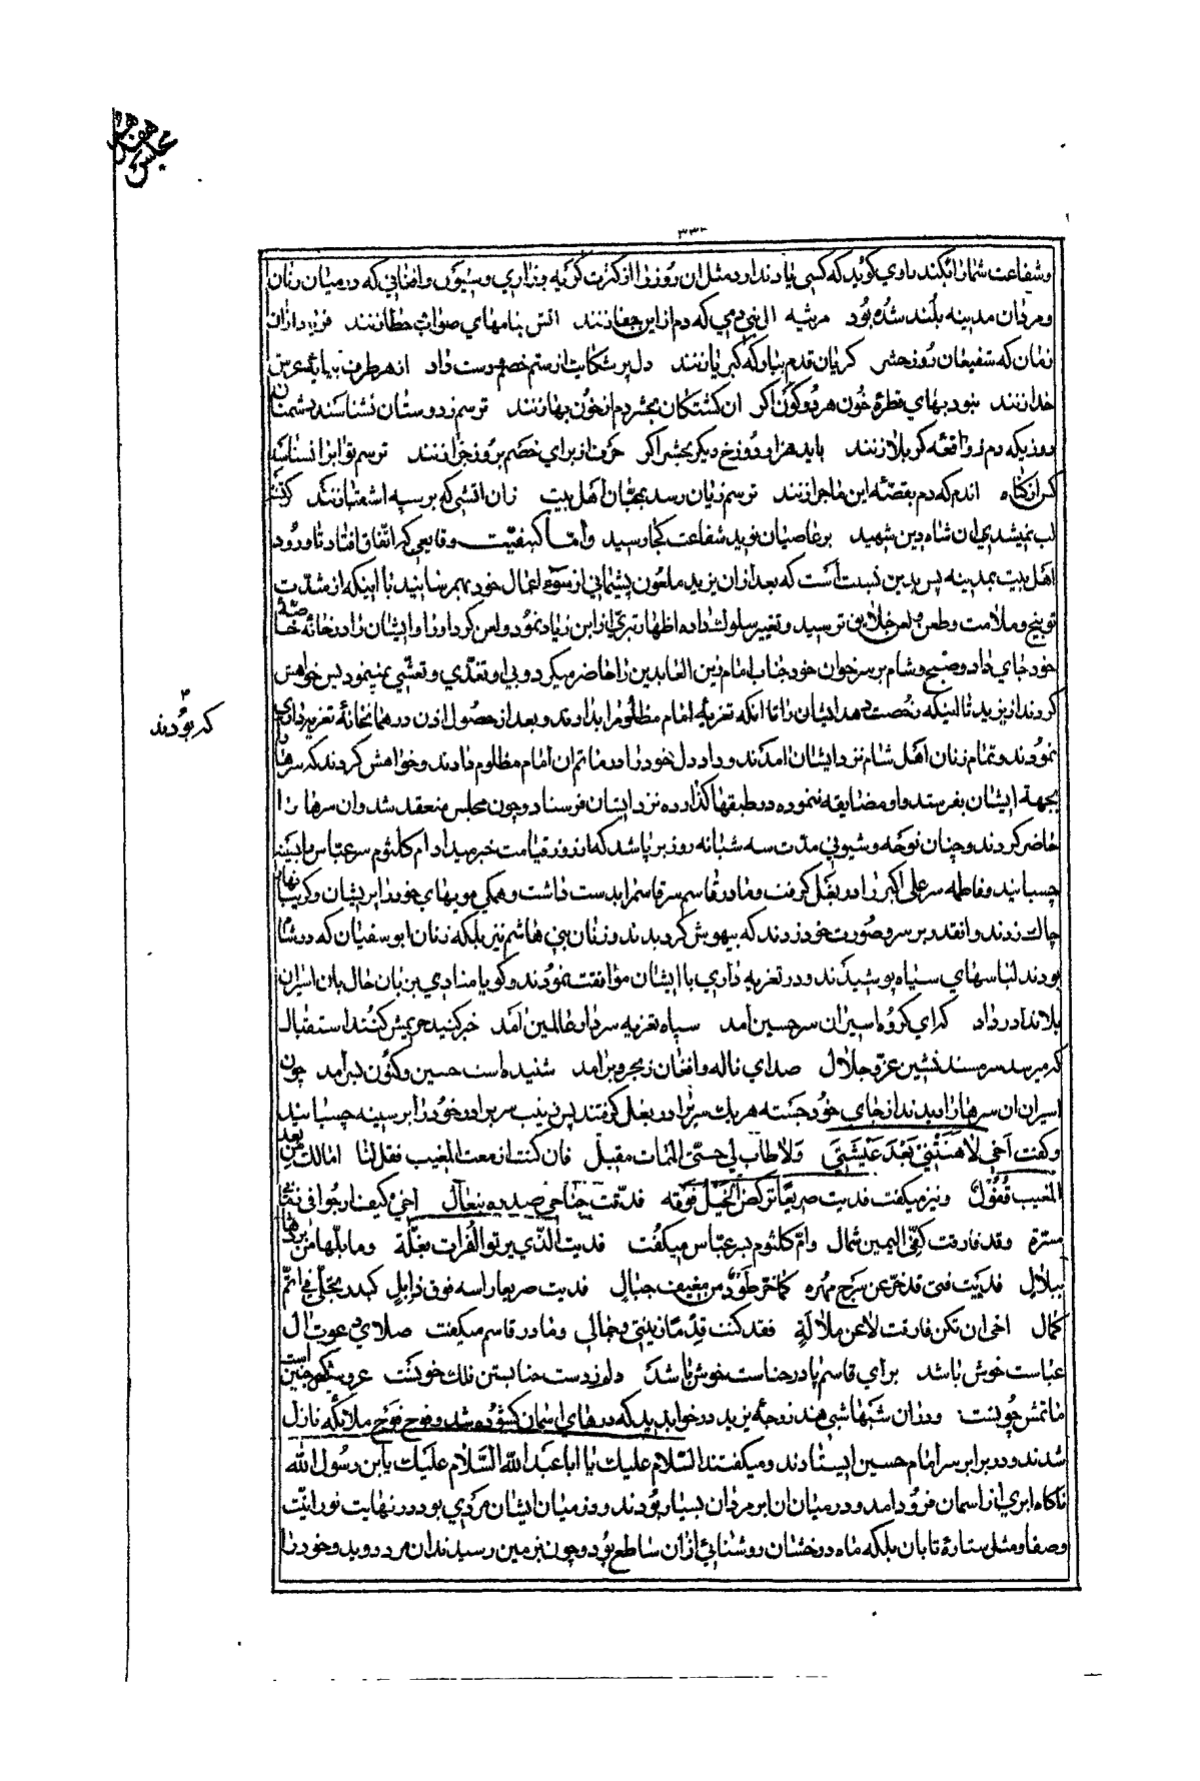 مجلس هفدهم
۳۳۲
و شفاعت شما را نکند راوی گوید که کسی یاد ندارد مثل ان روز را از کثرت گریه و زاری و شیون و افغانی که در میان زنان
و مردان مدینه بلند شده بود مرثیه ال نبی دمی که دم از این جفا زنند اتش بنامهای صواب خطا زنند فریاد از ان
زمان که شفیعان روز حشر گریان قدم ببارگه کبریا زنند دل پر شکایت از ستم خصم دوست داد از هر طرف بپایه عرش
خدا زنند نبود بهای قطره خون هر دو کون اگر ان کشتکان بمحشر دم از خون بها زنند ترسم ز دوستان نشناسند دشمنان
روزیکه دم ز واقعه کربلا زنند باید هزار دوزخ دیگر بحشر اگر حرف از برای خصم بروز جزا زنند ترسم ثواب را نشناسند
از گناه اندم که دم بقصه این ماجرا زنند ترسم زیان رسد بمحبان اهل بیت زان اتشی که بر سپه اشقیا زنند گر تشنه
لب نمیشد ان شاه دین شهید بر عاصیان نوید شفاعت کجا رسید و امّا کیفیّت وقایعی که اتّفاق افتاد تا ورود
اهل بیت بمدینه پس بدین نسبت است که بعد از ان یزید ملعون پشیمانی از سوء اعمال خود بهم رسانید با اینکه از شدّت
توبیخ و ملامت و طعن و لعن خلایق ترسید و تغییر سلوک داده اظهار تبری از ابن زیاد نمود و لعن کرد او را و ایشان را در خانه خاصّهٔ
خود جای داد و صبح و شام بر سر خوان خود جناب امام زین العابدین را حاضر میکرد و بی او تغدّی و تعشّی نمینمود پس خواهش
کردند از یزید تا اینکه رخصت دهد ایشان را تا انکه تعزیه امام مظلوم را بدارند و بعد از حصول اذن در همان خانه تعزیه داری
که بودند
نمودند و تمام زنان اهل شام نزد ایشان امدند و داد دل خود را در ماتم ان امام مظلوم دادند و خواهش کردند که سرها را
بجهة ایشان بفرستد و او مضایقه ننموده در طبقها گذارده نزد ایشان فرستاد و چون مجلس منعقد شد و ان سرها را
حاضر کردند و چنان نوحه و شیونی مدّت سه شبانه روز برپا شد که از روز قیامت خبر میداد ام کلثوم سر عباس را بسینه
چسبانید و فاطمه سر علی اکبر را در بغل گرفت و مادر قاسم سر قاسم را بدست داشت و همگی مویهای خود را پریشان و گریبانها
چاک زدند و انقدر بر سر و صورت خود زدند که بیهوش گردیدند و زنان بنی هاشم نیز بلکه زنان ابو سفیان که در شام
بودند لباسهای سیاه پوشیدند و در تعزیه داری با ایشان موافقت نمودند و گویا منادی بزبان حال بان اسیران
بلا ندا در داد که ای گروه اسیران سر حسین امد سپاه تعزیه سردار عالمین امد خبر کنید حریمش کنند استقبال
که میرسد سر مسند نشین عزّ و جلال صدای ناله و افغان ز بحر و بر امد شنیده است حسین و کنون بسر آمد چون
اسیران ان سرها را دیدند از جای خود جسته هر یک سری را در بغل گرفتند پس زینب سر برادر خود را بر سینه چسبانید
و گفت اخی لا هَنَئَنی بَعْدَ عَیْشَتی وَلا طاب لی حتّی الممات مقیل فان کنت ازمعت المغیب فقل لنا امالک من بعد
المغیب قُفُولٌ و نیز میگفت فدیت صریعًا ترکض الخیل فوقه فدقّت جناحی صدره بنعال اخی کیف ارجوا فی
مسترة و قد فارقت کفّی الیمین شمال و امّ کلثوم بسر عباس میگفت فدیت الّذی یرنو الفرات بغلّة و ما بلّها من بردها
ببلال فدیت فتی قد خرّ عن سرج مهره کما خر طود من جبال فدیت صریعا راسه فوق ذابل کبدر تجلّی فی اتمّ
کمال اخی ان تکن فارقت لا عن ملالة فقد کنت قدمًا زینتی و جمالی و مادر قاسم میگفت صلای عوت ال
عباست خوش باشد برای قاسم پا در حناست خوش باشد دلم ز دست حنا بستن فلک خونست عروسیکه چنین است
ماتمش چونست و در ان شبها شبی هند زوجه یزید در خواب دید که درهای اسمان گشوده شد و فوج فوج ملائکه نازل
شدند و در برابر سر امام حسین ایستادند و میگفتند السّلام علیک یا ابا عبد الله السّلام علیک یابن رسول الله
ناگاه ابری از اسمان فرود امد و در میان ان ابر مردان بسیار بودند و در میان ایشان مردی بود در نهایت نورانیّت
و صفا و مثل ستاره تابان بلکه ماه درخشان روشنائی از ان ساطع بود و چون بزمین رسیدند ان مرد دوید و خود را